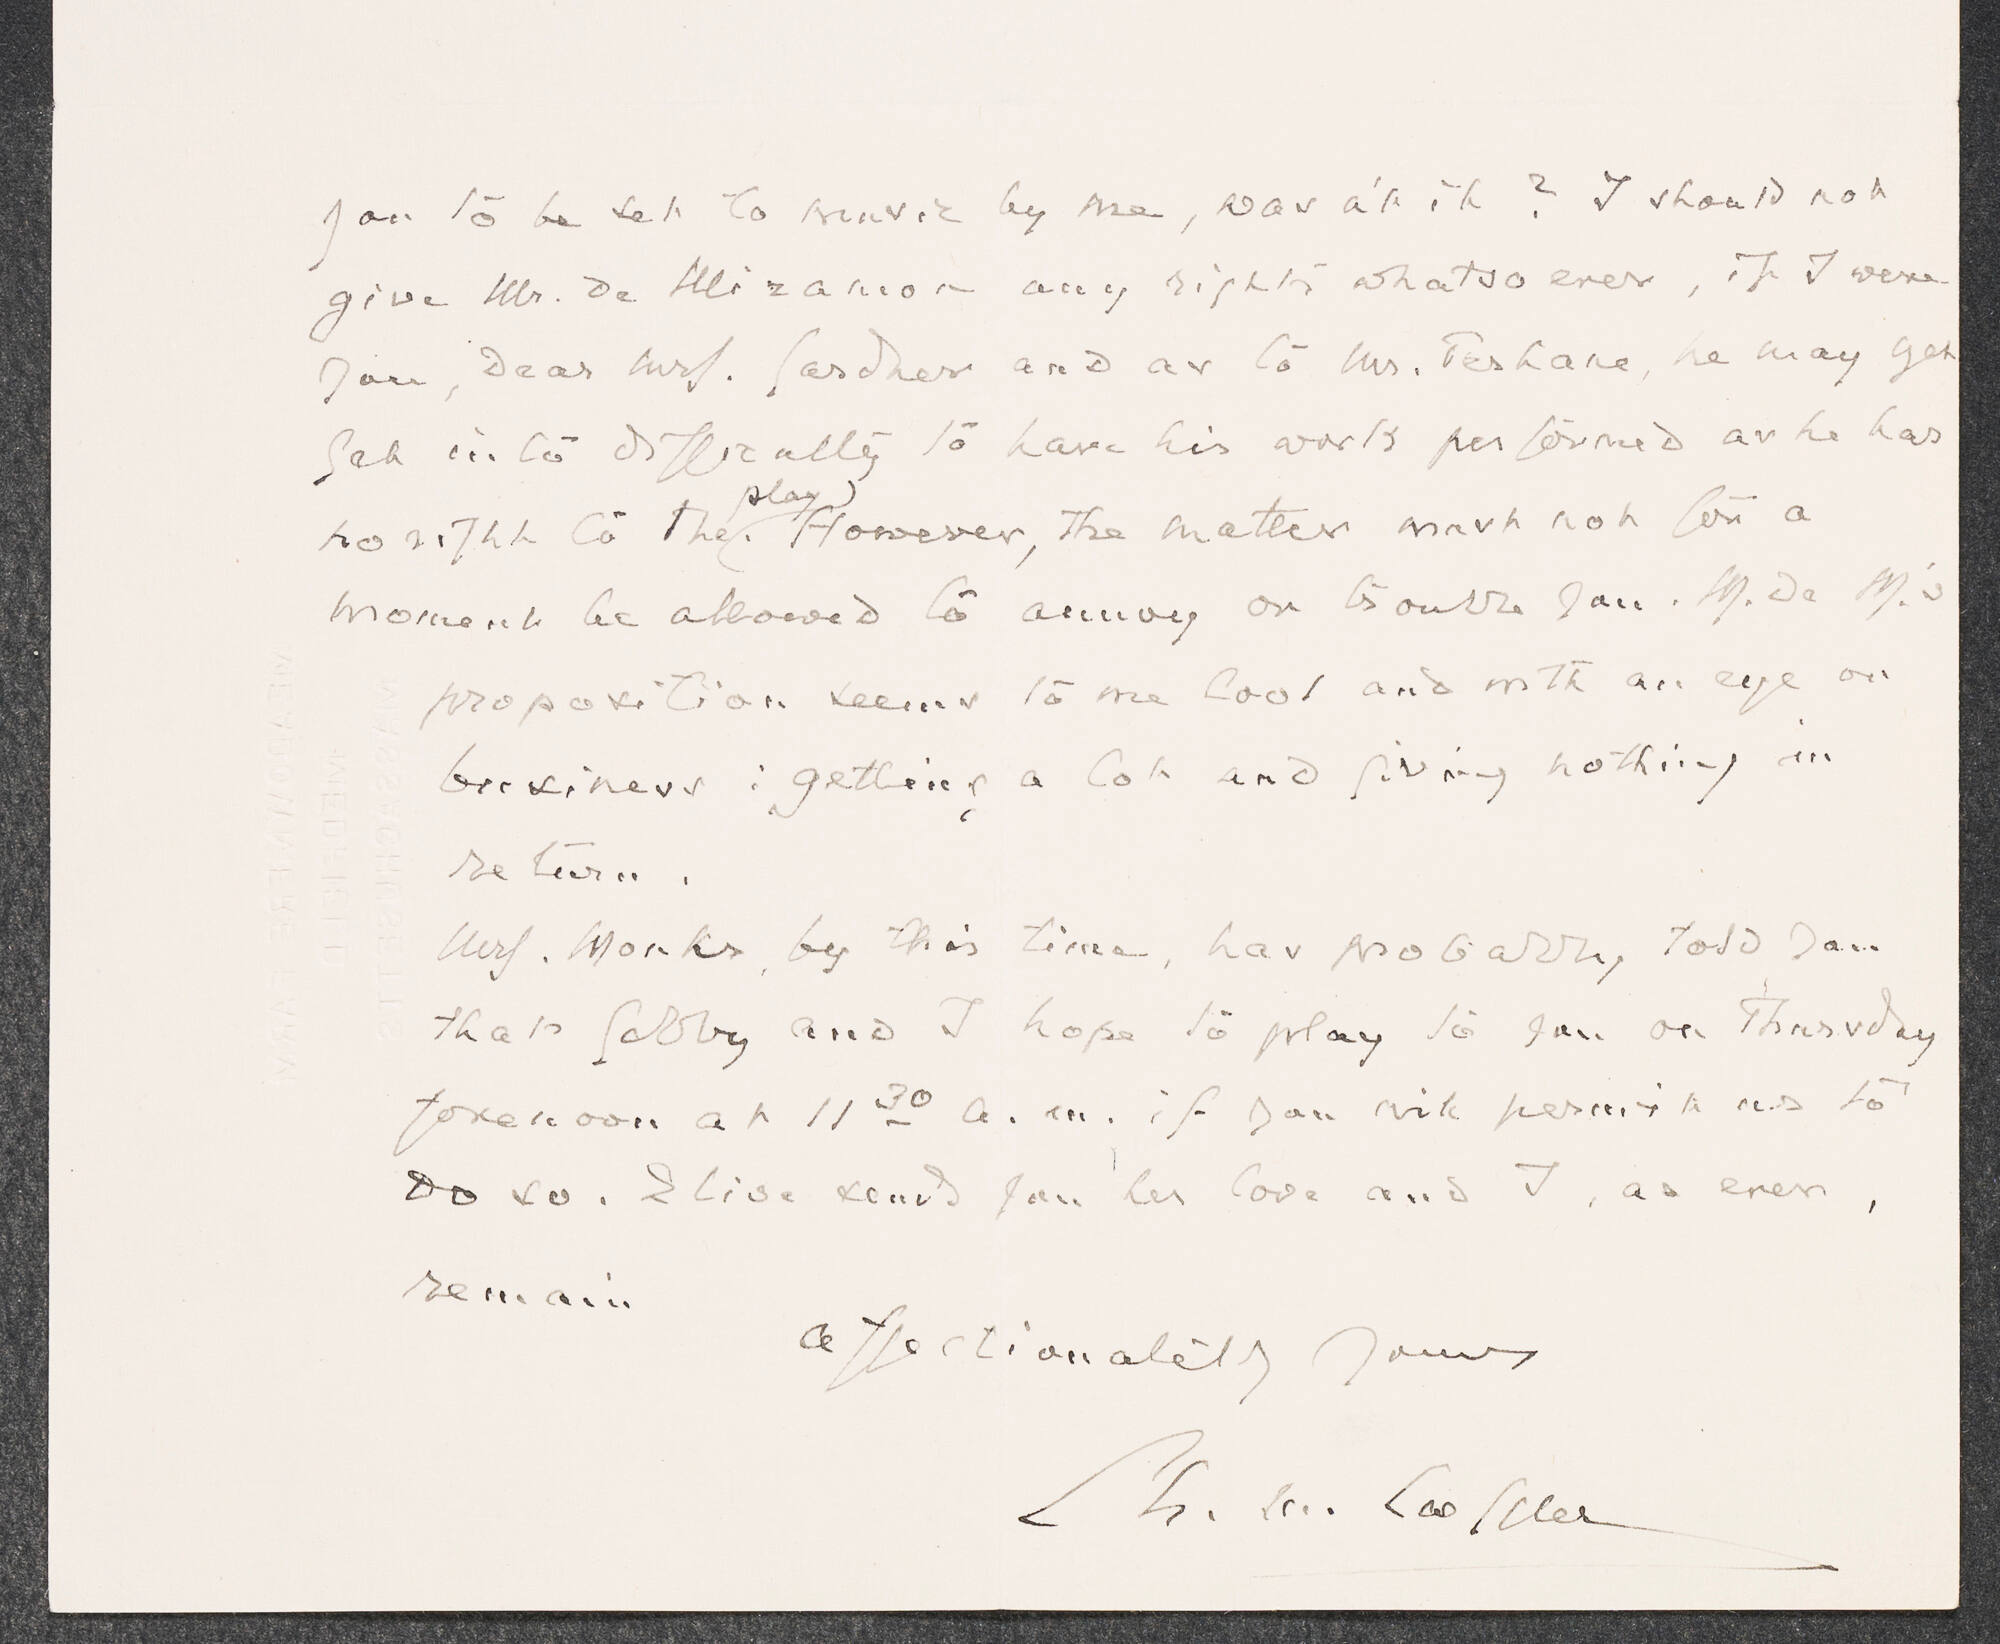 you to be set to music by me, was n't it? I should not
give Mr. de Mizamon any rights whatsoever, if I were
you, dear Mrs. Gardner and as to Mr. Terhane, he may yet
get into difficulty to have his work performed as he has
no right to the play. However, the matter must not for a
moment be allowed to annoy or trouble you. M. de M.'s
proposition seems to me cool and with an eye on
business: getting a lot and giving nothing in
return.
Mrs. Monks, by this time, has probably told you
that Gebby and I hope to play to you on Thursday
forenoon at 11 30 a.m. if you will permit us to
do so. Elise sends you her love and I, as ever,
remain
affectionately yours
Ch. M. Loeffler
MEADOWMERE FARM
MEDFIELD
MASSACHUSETTS